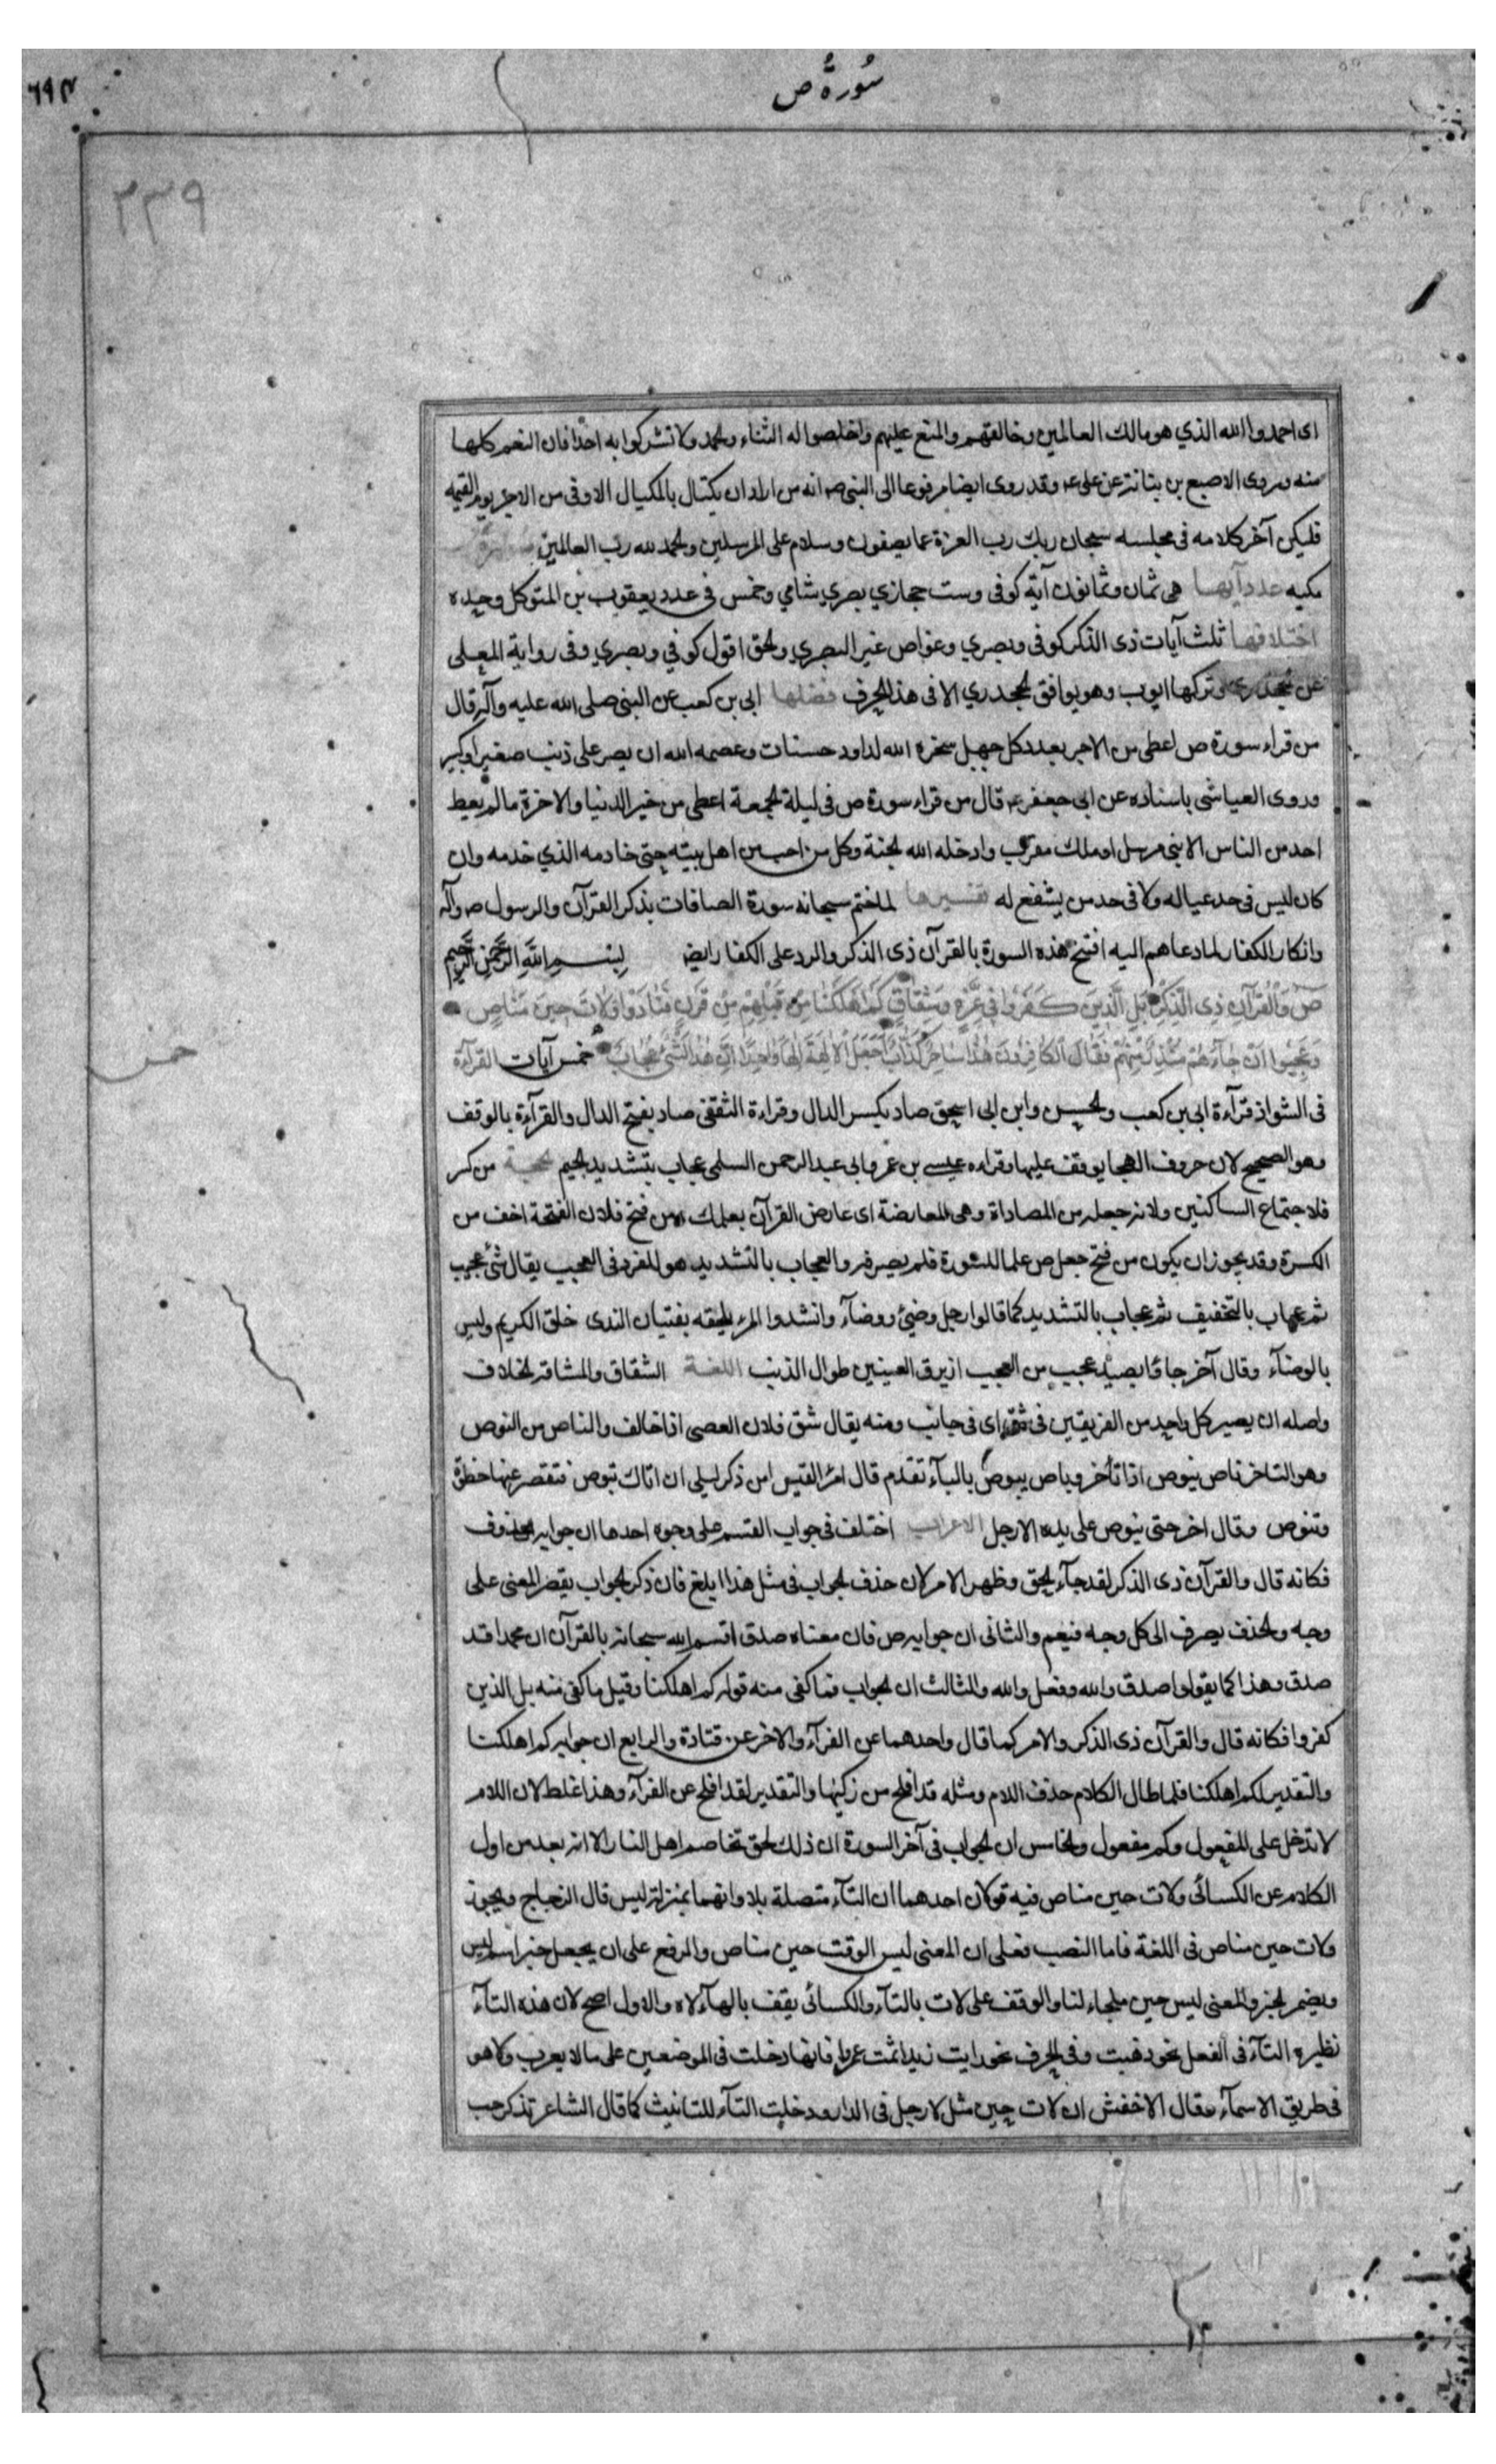 سُورةُ ص
٢٣٩
اى احمدوا الله الذي هو مالك العالمين وخالقهم والمنعم عليهم واخلصوا له الثناء والحمد ولا تشركوا به احدا فان النعم كلها
منه وروى الاصبغ بن نباتة عن على ع وقد روى ايضا مرفوعا الى النبى ص انه من اراد ان يكتال بالمكيال الاوفى من الاجر يوم القيمه
فليكن آخر كلامه فى مجلسه سبحان ربك رب العزة عما يصفون وسلام على المرسلين والحمد لله رب العالمين
مكيه عدد آيها هى ثمان وثمانون آية كوفى وست حجازي بصري شامي وخمس فى عدد يعقوب بن المتوكل وحيده
اختلافها ثلث آيات ذى الذكر كوفى وبصري وغواص غير البصري والحق اقول كوفي وبصري وفى رواية المعلى
عن الجحدري وتركها ايوب وهو يوافق الجحدري الا فى هذا الحرف فضلها ابى بن كعب عن النبى صلى الله عليه وآله قال
من قراء سورة ص اعطى من الاجر بعدد كل جبل سخره الله لداود حسنات وعصمه الله ان يصر على ذنب صغير او كبير
وروى العياشى باسناده عن ابى جعفر ع قال من قراء سورة ص فى ليلة الجمعة اعطى من خير الدنيا والاخرة ما لم يعط
احد من الناس الا نبى مرسل او ملك مقرب وادخله الله الجنة وكل من احب من اهل بيته حتى خادمه الذي خدمه وان
كان ليس فى حد عياله ولا فى حد من يشفع له تفسيرها لما ختم سبحانه سورة الصافات بذكر القرآن والرسول ص وآله
وانكار الكفار لما دعاهم اليه افتتح هذه السورة بالقرآن ذى الذكر والرد على الكفار ايضا بِسْمِ اللهِ الرَّحْمٰنِ الرَّحِيمِ
صۤ وَالْقُرْآنِ ذِى الذِّكْرِ بَلِ الَّذِينَ كَفَرُوا فِى عِزَّةٍ وَشِقَاقٍ كَمْ اَهْلَكْنَا مِنْ قَبْلِهِمْ مِنْ قَرْنٍ فَنَادَوْا وَلَاتَ حِينَ مَنَاصٍ
وَعَجِبُوا اَنْ جَاءَهُمْ مُنْذِرٌ مِنْهُمْ فَقَالَ الْكَافِرُونَ هٰذَا سَاحِرٌ كَذَّابٌ اَجَعَلَ الْاٰلِهَةَ اِلٰهًا وَاحِدًا اِنَّ هٰذَا لَشَىْءٌ عُجَابٌ خمس آيات القراءة
فى الشواذ قرآءة ابى بن كعب والحسن وابن ابى اسحق صاد بكسر الدال وقراءة الثقفى صاد بفتح الدال والقرآءة بالوقف
وهو الصحيح لان حروف الهجا يوقف عليها وقراءه عيسى بن عمر وابى عبد الرحمن السلمى عجاب بتشديد الجيم الحجة من كسر
فلاجتماع الساكنين ولانه جعله من المصاداة وهى المعارضة اى عارض القرآن بعملك ومن فتح فلان الفتحة اخف من
الكسرة وقد يجوز ان يكون من فتح جعل ص علما للسورة فلم يصرفه والعجاب بالتشديد هو المفرط فى العجب يقال شئ عجيب
ثم عجاب بالتخفيف ثم عجاب بالتشديد كما قالوا رجل وضئ ووضآء وانشدوا المرء يلحقه بفتيان الندى خلق الكريم وليس
بالوضآء وقال آخر جاؤا بصيد عجب من العجب ازيرق العينين طوال الذنب اللغة الشقاق والمشاقة الخلاف
واصله ان يصير كل واحد من الفريقين فى شق اى فى جانب ومنه يقال شق فلان العصى اذا خالف والناص من النوص
وهو التاخر ناص ينوص اذا تأخر وباص يبوص بالبآء تقدم قال امرؤ القيس امن ذكر ليلى ان اتاك تبوص فتقصر عنها خطوة
وتنوص وقال اخر حتى ينوص على يده الارجل الاعراب اختلف فى جواب القسم على وجوه احدها ان جوابه محذوف
فكانه قال والقرآن ذى الذكر لقد جآء الحق وظهر الامر لان حذف الجواب فى مثل هذا ابلغ فان ذكر الجواب يقصر المعنى على
وجه والحذف يصرف الى كل وجه فيعم والثانى ان جوابه ص فان معناه صدق اقسم الله سبحانه بالقرآن ان محمدا قد
صدق وهذا كما يقولوا صدق والله وفعل والله والثالث ان الجواب مما كفى منه قوله كم اهلكنا وقيل ما كفى منه بل الذين
كفروا فكانه قال والقرآن ذى الذكر والامر كما قال واحدهما عن الفرآء والاخر عن قتادة والرابع ان جوابه كم اهلكنا
والتقدير لكم اهلكنا فلما طال الكلام حذف اللام ومثله قد افلح من زكيها والتقدير لقد افلح عن الفرآء وهذا غلط لان اللام
لا تدخل على المفعول وكم مفعول والخامس ان الجواب فى آخر السورة ان ذلك لحق تخاصم اهل النار الا انه بعد من اول
الكلام عن الكسائى ولات حين مناص فيه قولان احدهما ان التآء متصلة بلا وانهما بمنزلة ليس قال الزجاج ويجوز
ولات حين مناص فى اللغة فاما النصب فعلى ان المعنى ليس الوقت حين مناص والرفع على ان يجعل حين اسم ليس
ويضمر الخبر والمعنى ليس حين ملجاء لنا والوقف على لات بالتآء والكسائى يقف بالهآء لاه والاول اصح لان هذه التآء
نظيره التآء فى الفعل نحو ذهبت وفى الحرف نحو رايت زيدا ثمت عمروا فانها دخلت فى الموضعين على ما لا يعرب ولا هو
فى طريق الاسمآء وقال الاخفش ان لات حين مثل لا رجل فى الدار ودخلت التآء للتانيث كما قال الشاعر تذكر حب